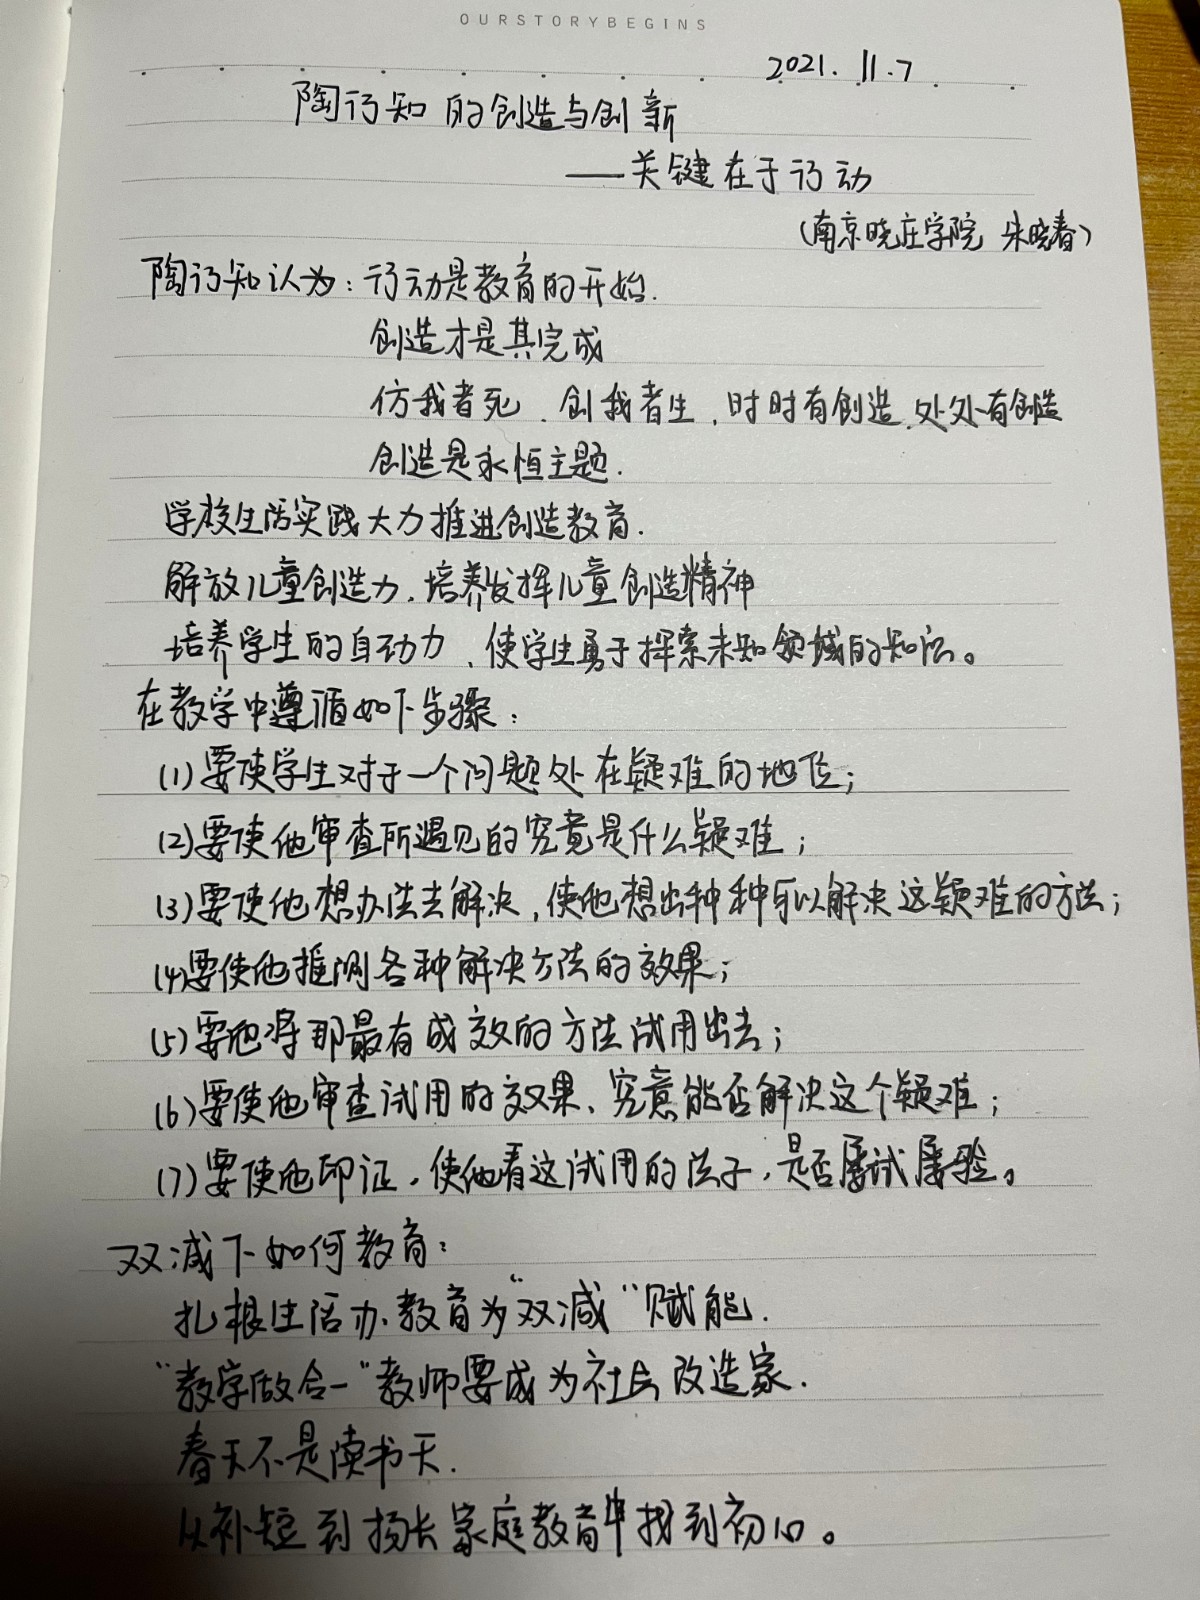 OURSTORYBEGINS
2021.11.7
陶行知的创造与创新
——关键在于行动
(南京晓庄学院 朱晓春)
陶行知认为:行动是教育的开始.
创造才是其完成
仿我者死、创我者生,时时有创造、处处有创造
创造是永恒主题.
学校生活实践大力推进创造教育.
解放儿童创造力、培养发挥儿童创造精神
培养学生的自动力、使学生勇于探索未知领域的知识。
在教学中遵循如下步骤:
(1)要使学生对于一个问题处在疑难的地位;
(2)要使他审查所遇见的究竟是什么疑难;
(3)要使他想办法去解决,使他想出种种可以解决这疑难的方法;
(4)要使他推测各种解决方法的效果;
(5)要他将那最有成效的方法试用出去;
(6)要使他审查试用的效果、究竟能否解决这个疑难;
(7)要使他印证,使他看这试用的法子,是否屡试屡验。
双减下如何教育:
扎根生活办教育为“双减“赋能.
“教学做合一“教师要成为社会改造家.
春天不是读书天.
从补短到扬长家庭教育中找到初心。